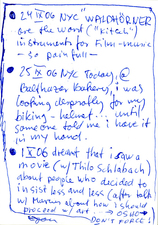 24 IX 06 NYC "WALDHÖRNER"
are the worst ("kitch")
instruments for Film-music
– so painfull –
25 IX 06 NYC Today, @
Balthazar Bakery, i was
looking desperatly for my
biking-helmet... until
someone told me i have it
in my hand.
1 X 06 dreamt that i saw a
movie (w/ Thilo Schlabach)
about people who decided to
insist less and less (after talk
w/ about how i should
proceed w/ art. → OSHO
DON'T FORCE!